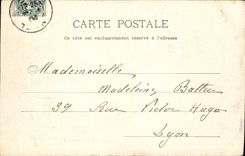 CARTE POSTALE
Ce côté est exclusivement réservé à l'adresse
Mademoiselle
Madeleine
39 Rue Victor Hugo
Lyon